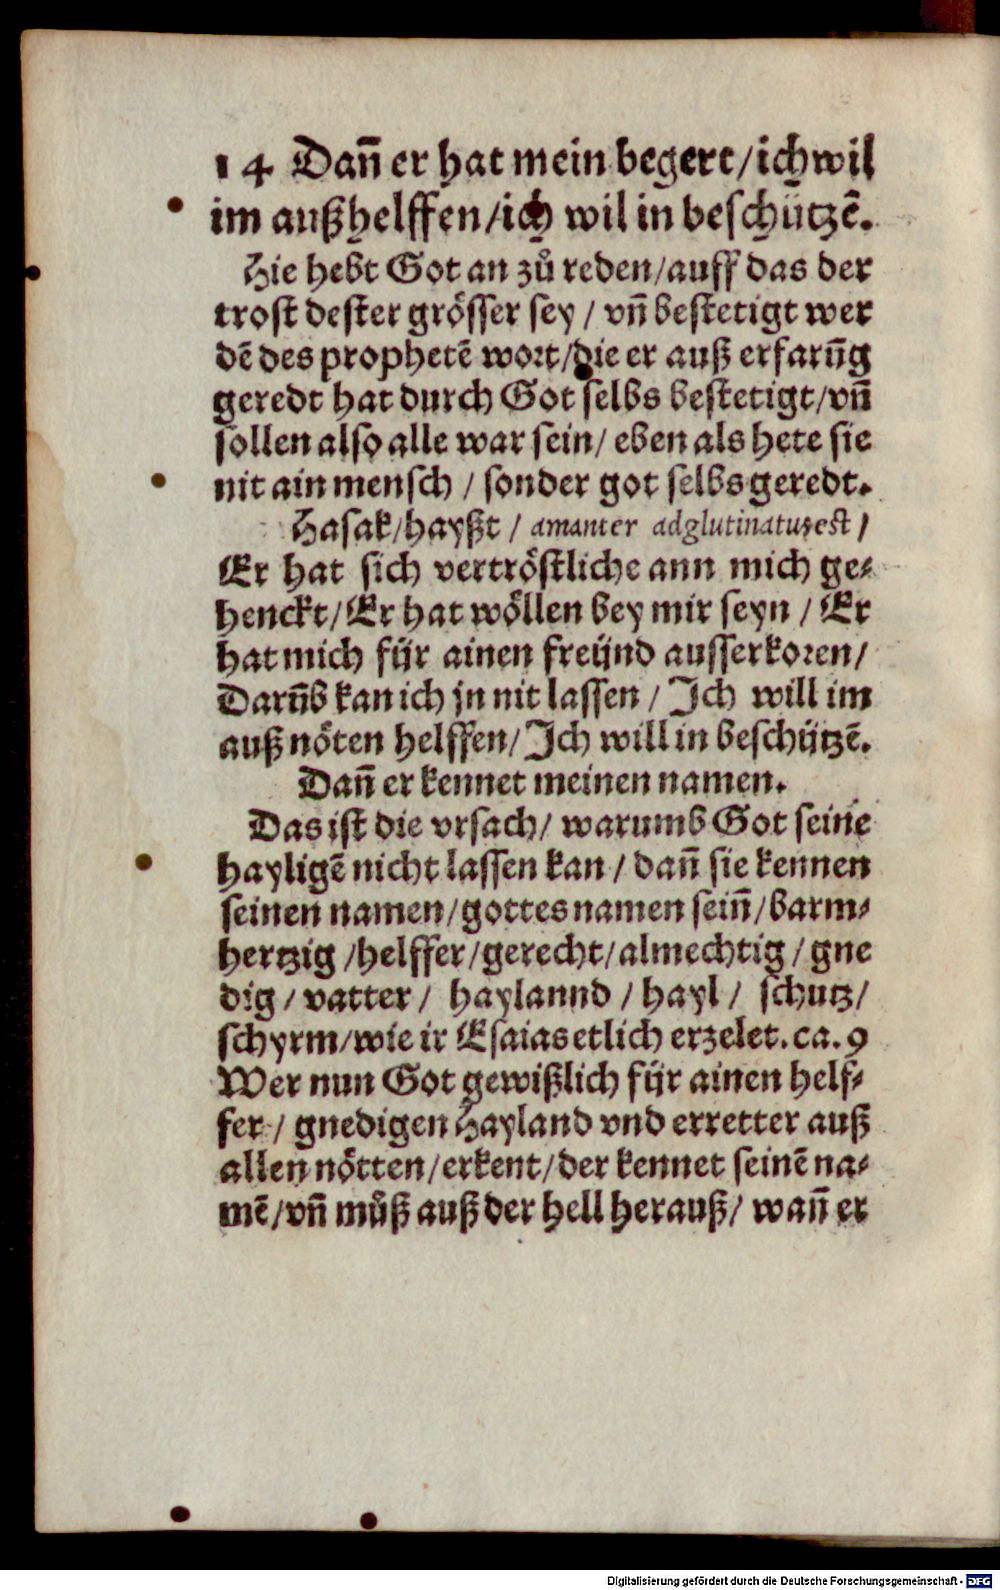 14 Dañ er hat mein begert/ich wil
im außhelffen/ich wil in beschützẽ.
Hie hebt Got an zů reden/auff das der
trost dester grösser sey / vñ bestetigt wer
dẽ des prophetẽ wort/die er auß erfarũg
geredt hat durch Got selbs bestetigt/vñ
sollen also alle war sein/ eben als hete sie
nit ain mensch / sonder got selbs geredt.
Hasak/hayßt / amanter adglutinatus est /
Er hat sich vertröstliche ann mich ge⸗
henckt/Er hat wöllen bey mir seyn / Er
hat mich für ainen freünd ausserkoren/
Darũb kan ich jn nit lassen / Ich will im
auß nöten helffen/Ich will in beschützẽ.
Dañ er kennet meinen namen.
Das ist die vrsach/ warumb Got seine
hayligẽ nicht lassen kan / dañ sie kennen
seinen namen/gottes namen seiñ/barm⸗
hertzig /helffer/gerecht/almechtig/gne
dig / vatter / haylannd / hayl / schutz/
schyrm/wie ir Esaias etlich erzelet. ca. 9
Wer nun Got gewißlich für ainen helf⸗
fer / gnedigen Hayland vnd erretter auß
allen nötten/erkent/der kennet seinẽ na⸗
mẽ/vñ můß auß der hell herauß/ wañ er
Digitalisierung gefördert durch die Deutsche Forschungsgemeinschaft - DFG